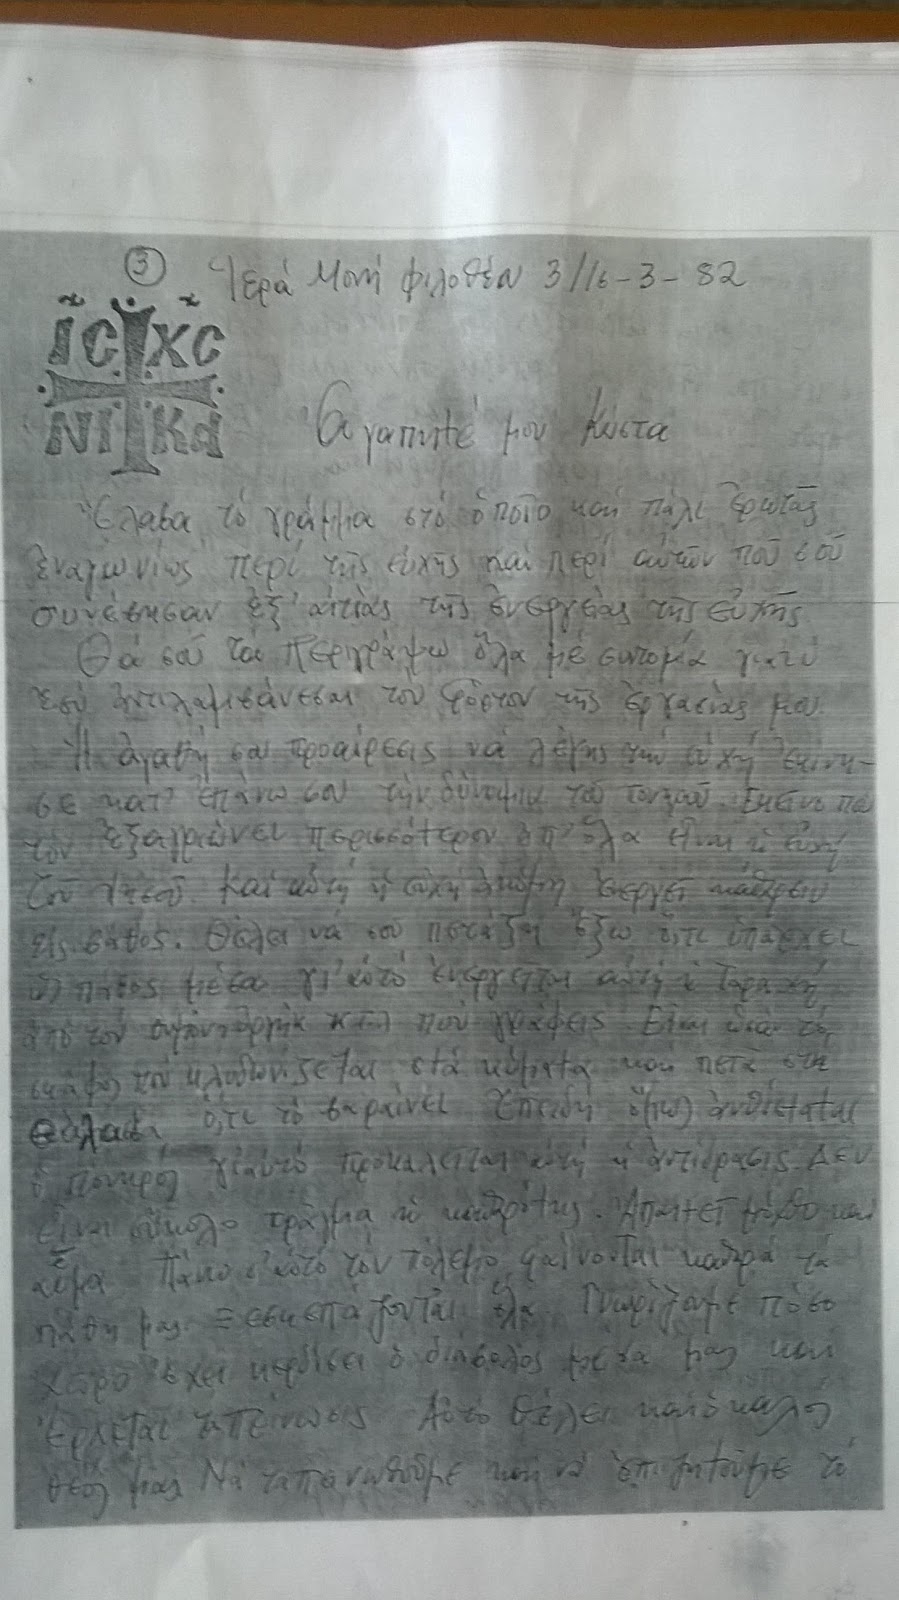 ③ Ἱερά Μονή Φιλοθέου 3/16-3-82
ΙC ΧC
ΝΙ ΚΑ
Ἀγαπητέ μου Κώστα
Ἔλαβα τό γράμμα στό ὁποῖο καί πάλι ἐρωτᾶς
ἐναγωνίως περί τῆς εὐχῆς καί περί αὐτῶν πού σοῦ
συνέβησαν ἐξ' αἰτίας τῆς ἐνεργείας τῆς εὐχῆς
Θά σοῦ τά περιγράψω ὅλα μέ συντομία γιατί
ἐσύ ἀντιλαμβάνεσαι τόν φόρτον τῆς ἐργασίας μου.
Ἡ ἀγαθή σου προαίρεσις νά λέγης τήν εὐχή ἐκίνη-
σε κατ' ἐπάνω σου τήν δύναμιν τοῦ. Ἐκεῖνο πού
τόν ἐξαγριώνει περισσότερον ἀπ' ὅλα εἶναι ἡ εὐχή
τοῦ Ἰησοῦ. Καί αὐτή ἡ εὐχή ἀκόμη ἐνεργεῖ κάθαρσιν
εἰς βάθος. Θέλει νά σοῦ πετάξη ἔξω ὅτι ὑπάρχει
μέσα γι' αὐτό αὐτή ἡ ταραχή
κτλ πού γράφεις Εἶναι σάν τό
πού στά κύματα καί πετᾶ στη
θάλασσα ὅτι τό βαραίνει Ἐπειδή ὅμως ἀνθίσταται
ὁ πονηρός γι' αὐτό προκαλεῖται αὐτή ἡ ἀντίδρασις. Δέν
εἶναι εὔκολο πρᾶγμα ἡ καθαρότης. Ἀπαιτεῖ μόχθο καί
αἷμα Πάνω σ' αὐτό τόν πόλεμο φαίνονται καθαρά τά
πάθη μας. Ξεσκεπάζονται ὅλα. Γνωρίζουμε πόσο
χῶρο ἔχει κερδίσει ὁ διάβολος μέσα μας καί
ἔρχεται ταπείνωσις Αὐτό θέλει καί ὁ καλός
Θεός μας Νά ταπεινωθοῦμε καί νά ἐπιζητοῦμε τό